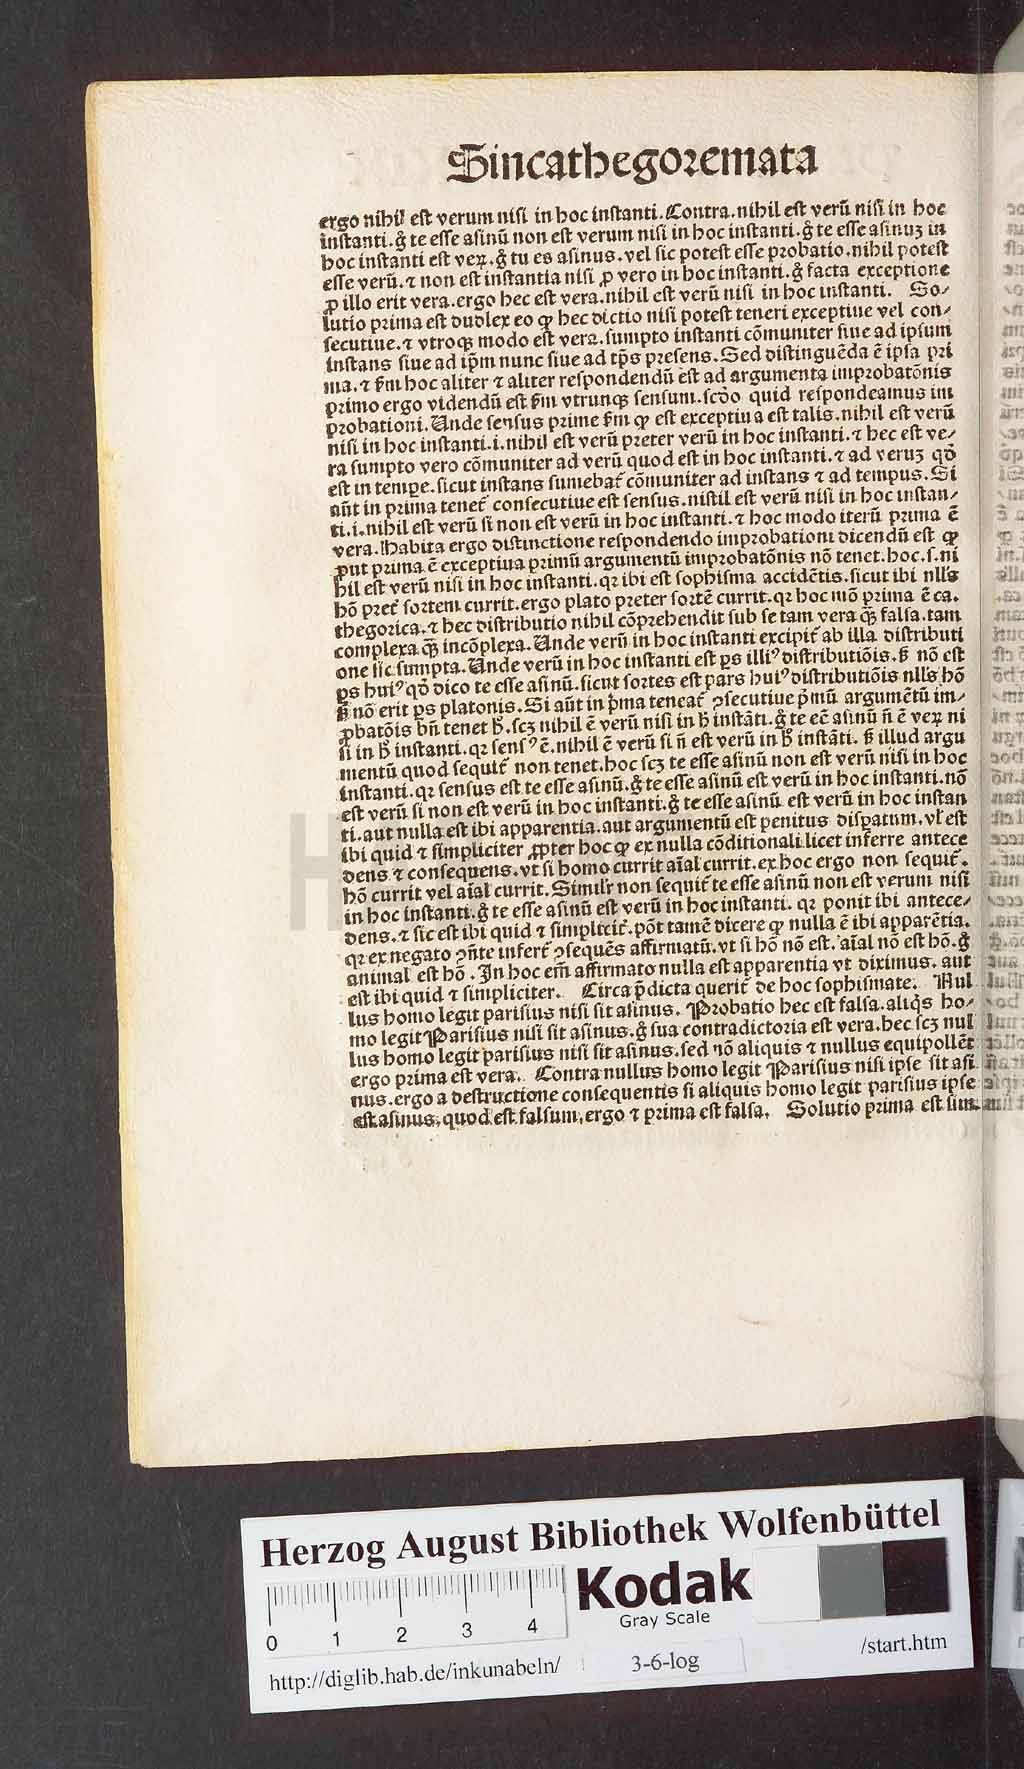 Sincathegoremata
ergo nihil est verum nisi in hoc instanti. Contra. nihil est verū nisi in hoc
instanti. g̊ te esse asinū non est verum nisi in hoc instanti. g̊ te esse asinuz in
hoc instanti est veꝝ. g̊ tu es asinus. vel sic potest esse probatio. nihil potest
esse verū. ⁊ non est instantia nisi ꝓ vero in hoc instanti. g̊ facta exceptione
ꝓ illo erit vera. ergo hec est vera. nihil est verū nisi in hoc instanti. So/
lutio prima est duplex eo ꝙ hec dictio nisi potest teneri exceptiue vel con/
secutiue. ⁊ vtroqꝫ modo est vera. sumpto instanti cōmuniter siue ad ipsum
instans siue ad ip̄m nunc siue ad tp̄s presens. Sed distinguēda ē ipsa pri
ma. ⁊ ẜm hoc aliter ⁊ aliter respondendū est ad argumenta improbatōnis
primo ergo videndū est ẜm vtrunqꝫ sensum. scd̊o quid respondeamus im
probationi. Unde sensus prime ẜm ꝙ est exceptiua est talis. nihil est verū
nisi in hoc instanti. i. nihil est verū preter verū in hoc instanti. ⁊ hec est ve/
ra sumpto vero cōmuniter ad verū quod est in hoc instanti. ⁊ ad veruz qd̊
est in tempe. sicut instans sumebat᷑ cōmuniter ad instans ⁊ ad tempus. Si
aūt in prima tenet᷑ consecutiue est sensus. nistil est verū nisi in hoc instan/
ti. i. nihil est verū si non est verū in hoc instanti. ⁊ hoc modo iterū prima ē
vera. Habita ergo distinctione respondendo improbationi dicendū est ꝙ
ꝓut prima ē exceptiua primū argumentū improbatōnis nō tenet. hoc. s. ni
hil est verū nisi in hoc instanti. qꝛ ibi est sophisma accidētis. sicut ibi nll's
hō preter sortem currit. ergo plato preter sortē currit. qꝛ hoc mō prima ē ca.
thegorica. ⁊ hec distributio nihil cōprehendit sub se tam vera qꝫ̄ falsa. tam
complexa qꝫ̄ incōplexa. Unde verū in hoc instanti excipit᷑ ab illa distributi
one sic sumpta. Unde verū in hoc instanti est ꝑs illiꝰ distributiōis. ẜ nō est
ꝑs huiꝰ qd̊ dico te esse asinū. sicut sortes est pars huiꝰ distributiōis nll's hō
ẜ nō erit ꝑs platonis. Si aūt in p̄ma teneat᷑ ꝯsecutiue p̄mū argumētū im/
ꝓbatōis bn̄ tenet h̄. scꝫ nihil ē verū nisi in h̄ instāti. g̊ te eē asinū n̄ ē veꝝ ni
si in h̄ instanti. qꝛ sensꝰ ē. nihil ē verū si n̄ est verū in h̄ instāti. ẜ illud argu
mentū quod sequit᷑ non tenet. hoc scꝫ te esse asinū non est verū nisi in hoc
instanti. qꝛ sensus est te esse asinū. g̊ te esse asinū est verū in hoc instanti. nō
est verū si non est verū in hoc instanti. g̊ te esse asinū est verū in hoc instan
ti. aut nulla est ibi apparentia. aut argumentū est penitus dispatum. vl' est
ibi quid ⁊ simpliciter ꝓpter hoc ꝙ ex nulla cōditionali licet inferre antece
dens ⁊ consequens. vt si homo currit aīal currit. ex hoc ergo non sequit᷑.
hō currit vel aīal currit. Simil'r non sequit᷑ te esse asinū non est verum nisi
in hoc instanti. g̊ te esse asinū est verū in hoc instanti. qꝛ ponit ibi antece/
dens. ⁊ sic est ibi quid ⁊ simplicit᷑. pōt tamē dicere ꝙ nulla ē ibi apparētia.
qꝛ ex negato ꝯn̄te infert᷑ ꝯsequēs affirmatū. vt si hō nō est. aīal nō est hō. g̊
animal est hō. In hoc em̄ affirmato nulla est apparentia vt diximus. aut
est ibi quid ⁊ simpliciter. Circa p̄dicta querit᷑ de hoc sophismate. Nul
lus homo legit parisius nisi sit asinus. Probatio hec est falsa. aliqs̄ ho/
mo legit Parisius nisi sit asinus. g̊ sua contradictoria est vera. hec scꝫ nul
lus homo legit parisius nisi sit asinus. sed nō aliquis ⁊ nullus equipollēt
ergo prima est vera. Contra nullus homo legit Parisius nisi ipse sit asi
nus. ergo a destructione consequentis si aliquis homo legit parisius ipse
est asinus. quod est falsum. ergo ⁊ prima est falsa. Solutio prima est sim
Herzog August Bibliothek Wolfenbüttel
0 1 2 3 4
Kodak
Gray Scale
http://diglib.hab.de/inkunabeln/
3-6-log
/start.htm